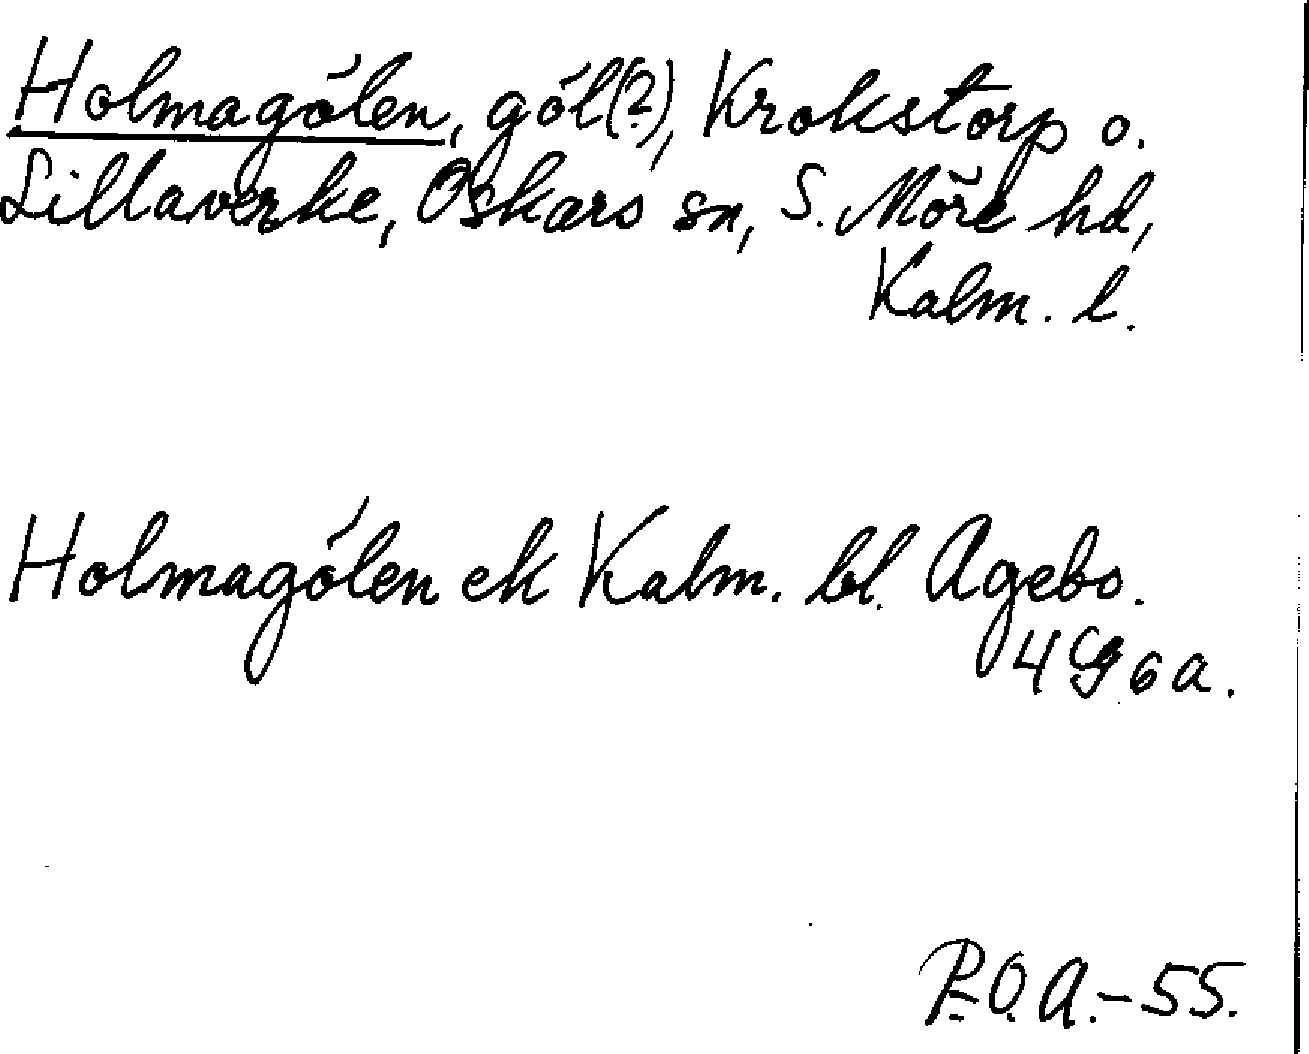 Holmagölen, göl(?), Krokstorp o.
Lillaverke, Oskars sn, S. Möre hd,
Kalm. l.
Holmagölen ek Kalm. bl. Agebo.
4 Cg 6 a.
P.O.A.-55.